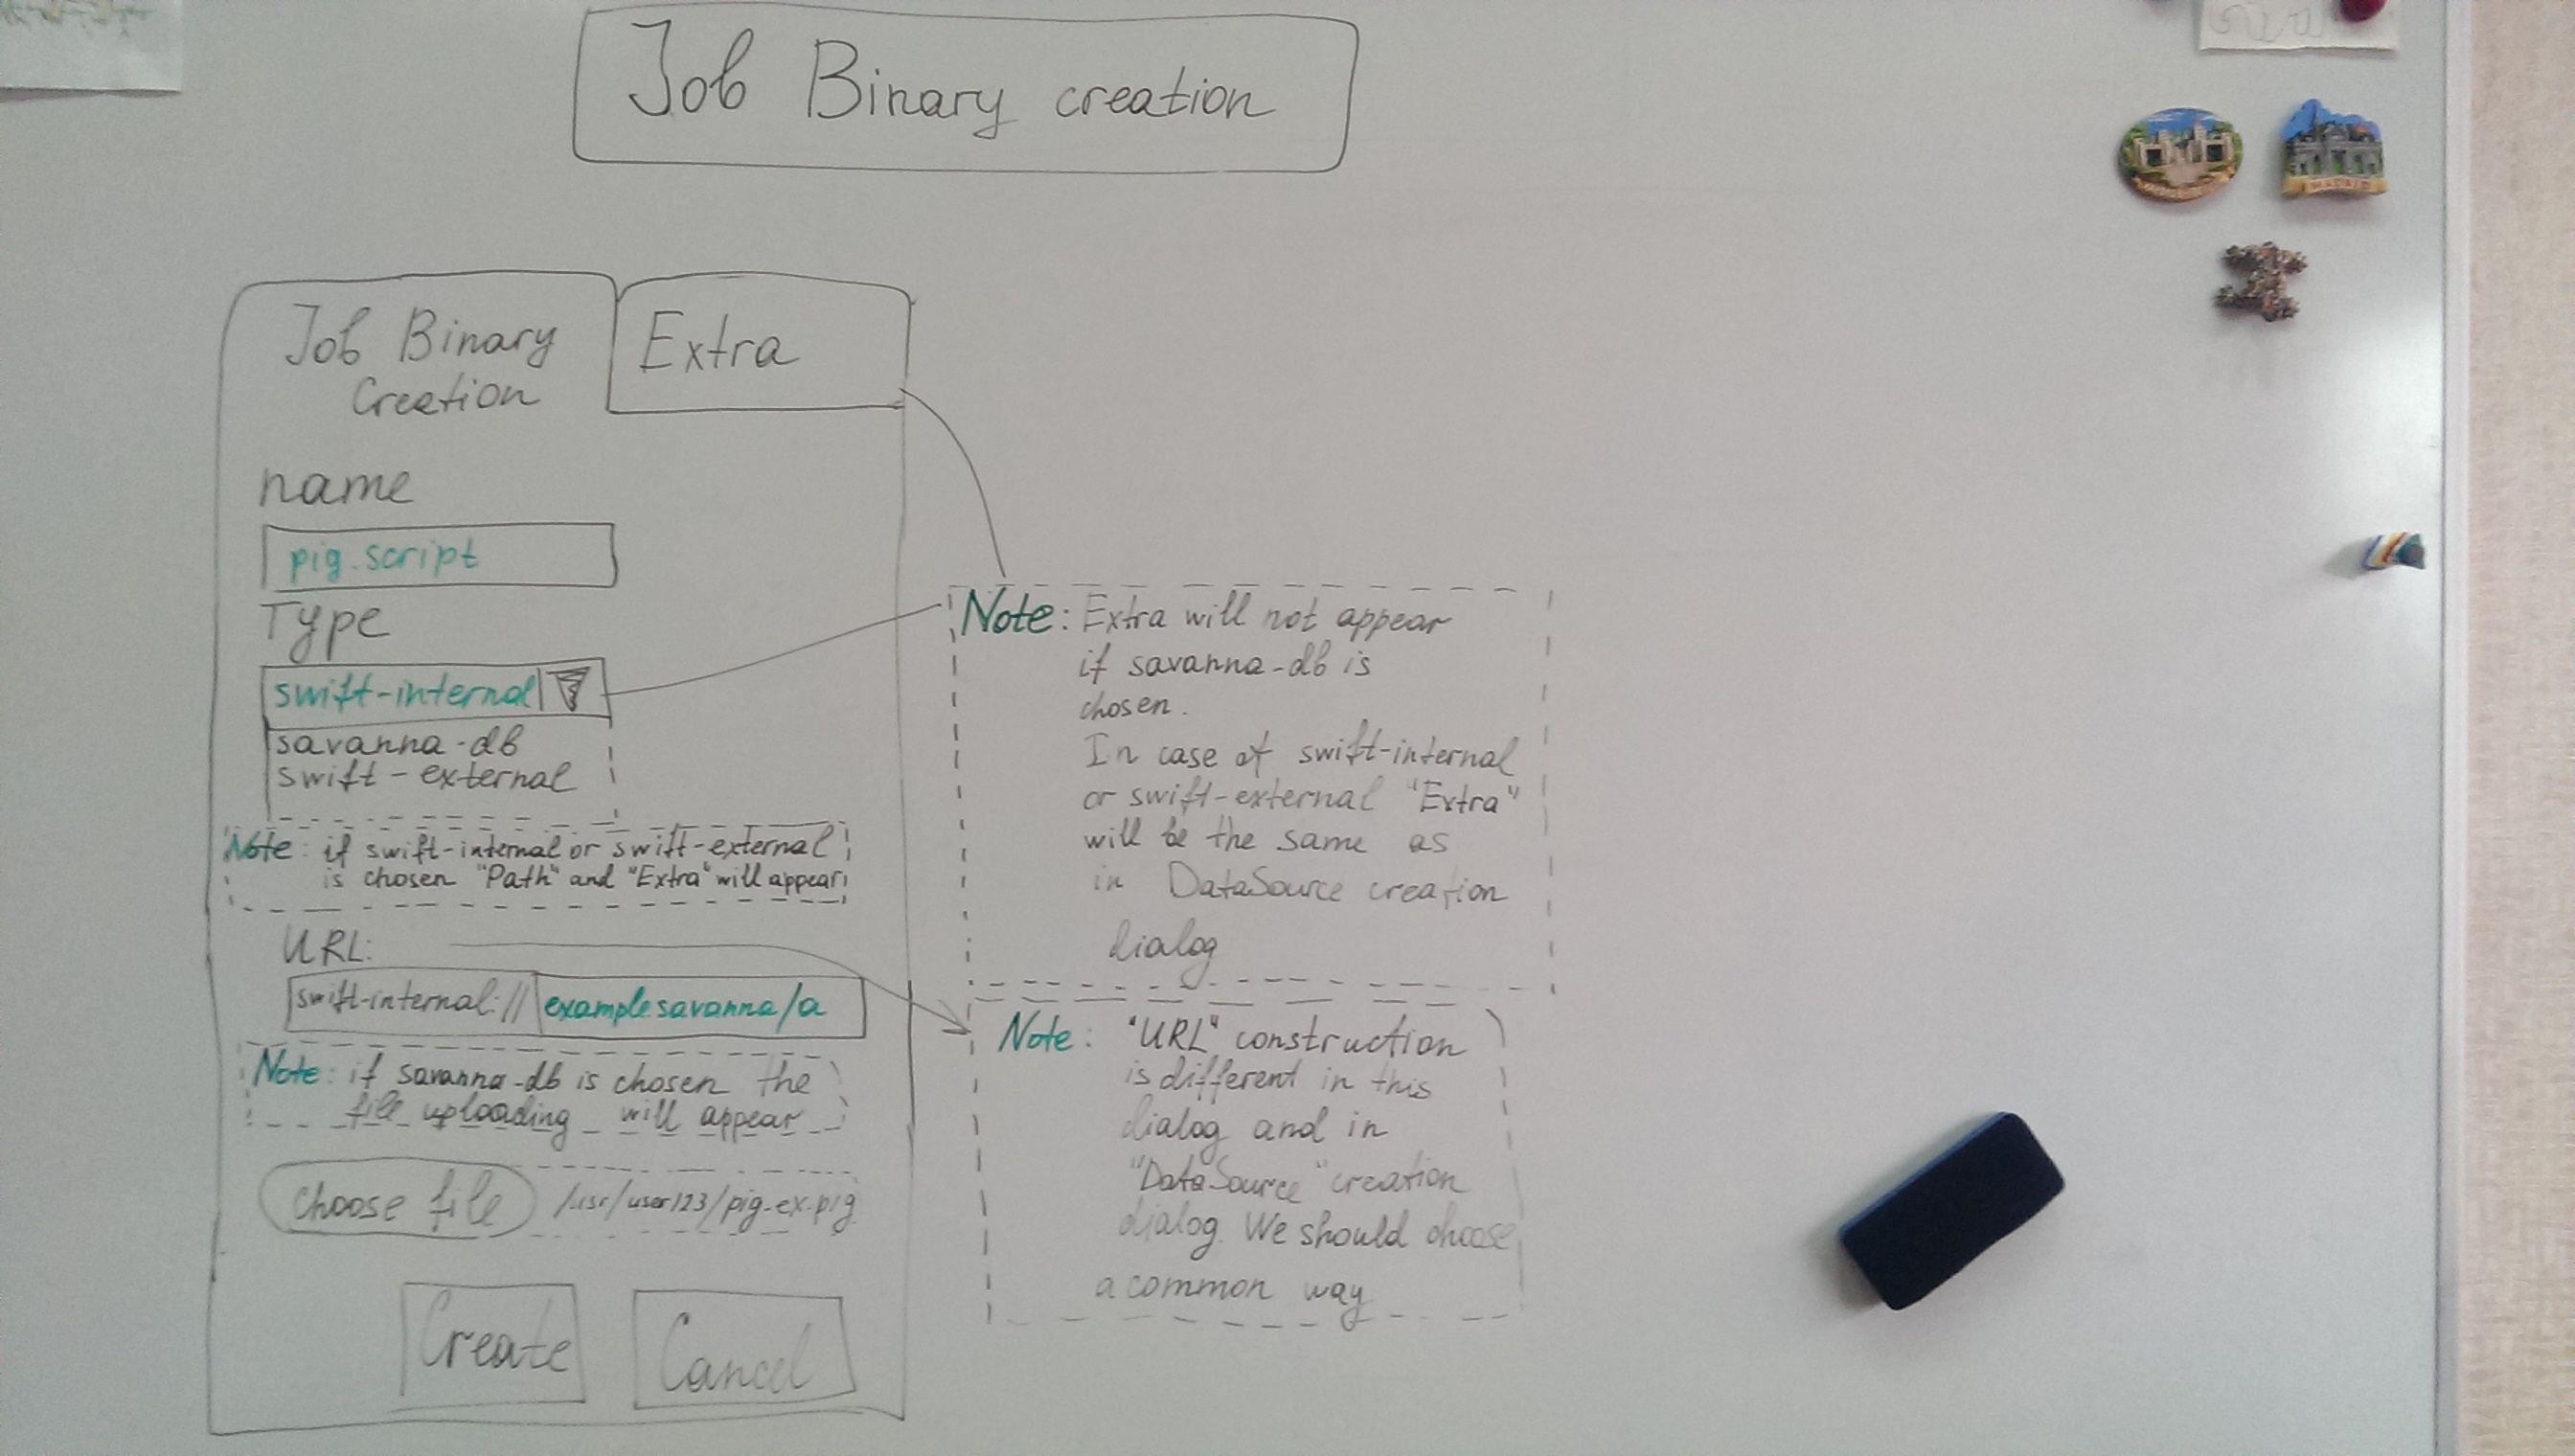 Job Binary creation
Job Binary
Creation
Extra
name
pig.script
Type
swift-internal
savanna-db
swift-external
Note: if swift-internal or swift-external
is chosen "Path" and "Extra" will appear
URL:
swift-internal:// example.savanna/a
Note: if savanna-db is chosen the
file uploading will appear
choose file /usr/user123/pig-ex.pig
Create
Cancel
Note: Extra will not appear
if savanna-db is
chosen.
In case of swift-internal
or swift-external "Extra"
will be the same as
in DataSource creation
dialog
Note: "URL" construction
is different in this
dialog and in
"DataSource" creation
dialog. We should choose
a common way
MADRID